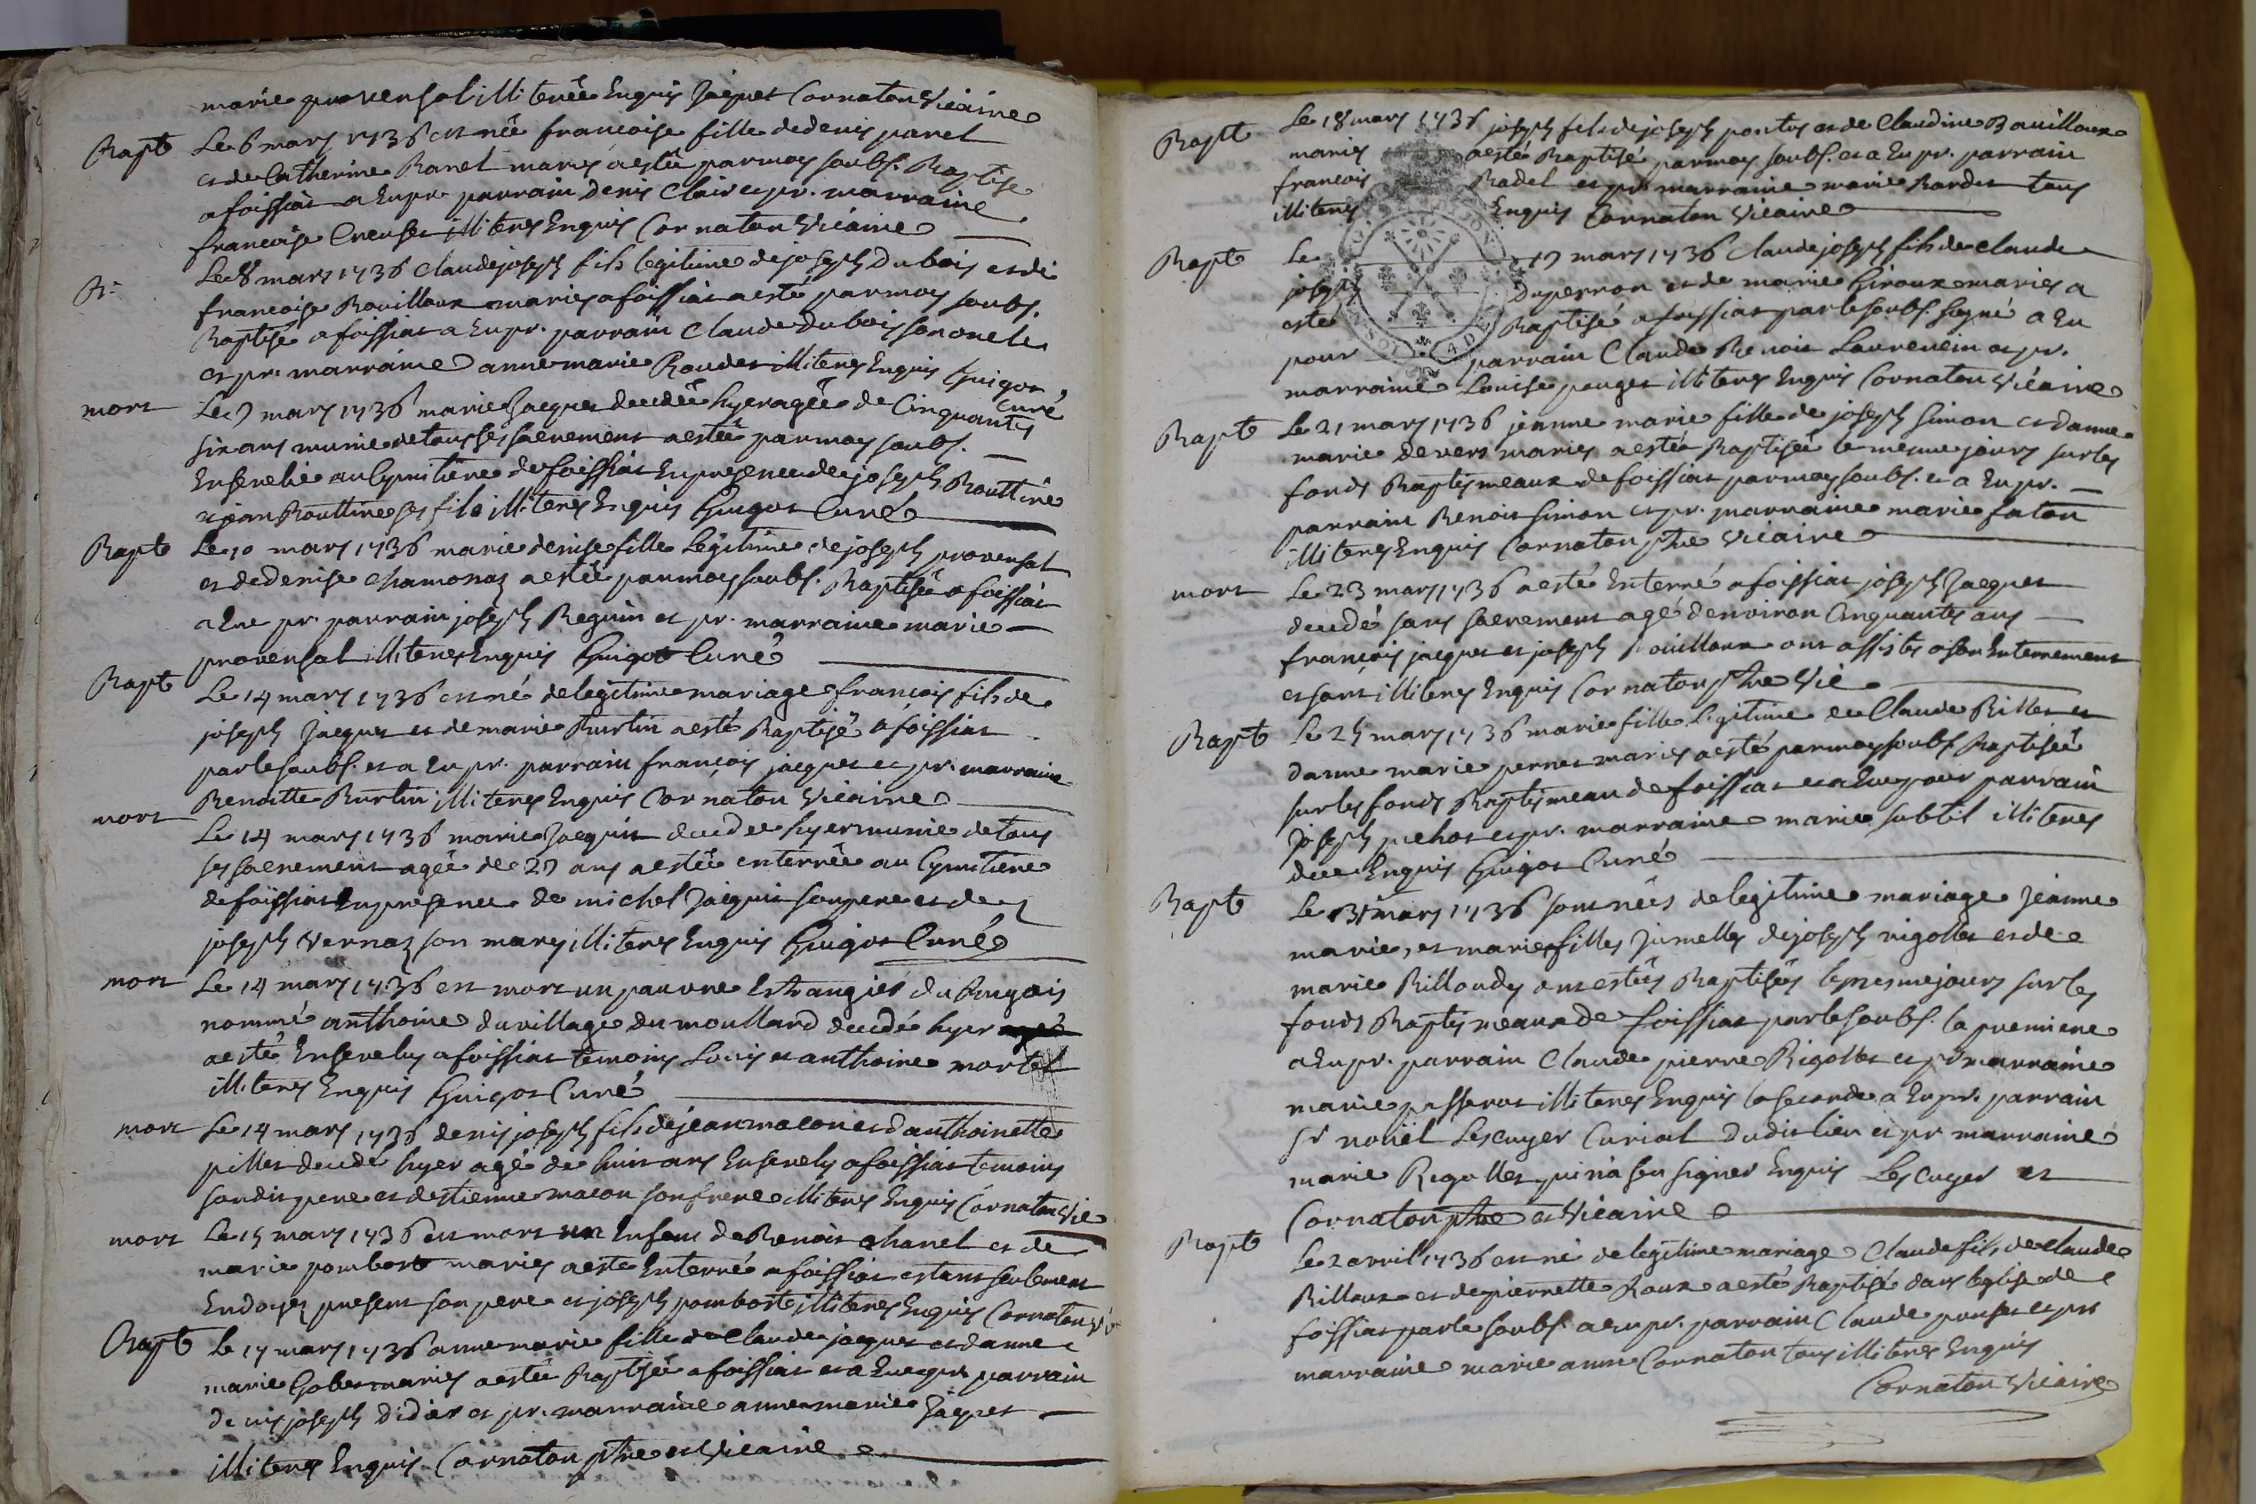 marie provensal illiterée Enquis Jaques Cornaton Vicaire
Bapt Le 6 mars 1736 est née francoise fille de denis panel
et de Catherine Ranel mariés a estée par moy soubs. Baptise
a foissiat a Eu pr. parrain denis Clair et pr. marraine
francoise Creuset illiterés Enquis Cornaton Vicaire
B. Le 8 mars 1736 Claude joseph fils legitime de joseph Dubois et de
francoise Bouilloux mariés a foissiat a esté par moy soubs.
Baptisé a foissiat a Eu pr. parrain Claude Dubois son oncle
et pr. marraine anne marie Roudet illiterés Enquis Guigot
curé
mort Le 9 mars 1736 marie Jaques decedée hyer agée de Cinquante
six ans munie de tous ses sacrements a estée par moy soubs.
Ensevelie au Cymitiere de foissiat En presence de joseph Routtire
et jean Routtire ses fils illiterés Enquis Guigot Curé
Bapt Le 10 mars 1736 marie denise fille Legitime de joseph provensal
et de denise Chamonaz a estée par moy soubs. Baptisée a foissiat
a Eue pr. parrain joseph Reguin et pr. marraine marie
provensal illiterés Enquis Guigot Curé
Bapt Le 14 mars 1736 est né de legitime mariage francois fils de
joseph Jaques et de marie Burtin a esté Baptisé a foissiat
par le soubs. et a Eu pr. parrain francois jacques et pr. marraine
Benoitte Burtin illiterés Enquis Cornaton Vicaire
mort Le 14 mars 1736 marie Jacquis decedée hyer munie de tous
ses sacrements agée de 27 ans a estée enterrée au Cymitiere
de foissiat En presence de michel Jaquis son pere et de
joseph Vernaz son mary illiterés Enquis Guigot Curé
mort Le 14 mars 1736 est mort un pauvre Estrangier du Bugeois
nommé anthoine du village du moullard decedé hyer agé
a esté Ensevely a foissiat temoins Louis et anthoine mortel
illiterés Enquis Guigot Curé
mort Le 14 mars 1736 denis joseph fils de jean macon et danthoinette
pillet decedé hyer agé de huit ans Ensevely a foissiat temoins
son dit pere et destienne macon son frere illiterés Enquis Cornaton Vic
mort Le 15 mars 1736 est mort un Enfant de Benoit Chanel et de
marie pombost mariés a esté Enterré a foissiat estant seulement
Endoyez present son pere et joseph pomboste illiterés Enquis Cornaton Vic
Bapt Le 17 mars 1736 anne marie fille de Claude jaques et danne
marie Gobet mariés a estée Baptisée a foissiat et a Eue pr. parrain
denis joseph didier et pr. marraine anne marie Jaques
illiterés Enquis Cornaton ptre et Vicaire
Bapt Le 18 mars 1736 joseph fils de joseph pontus et de Claudine Bouilloux
mariés a esté Baptisé par moy soubs. et a Eu pr. parrain
francois Radel et pr. marraine marie Bordet tous
illiterés Enquis Cornaton Vicaire
Bapt Le 19 mars 1736 Claude joseph fils de Claude
joseph Duperron et de marie Giroux mariés a
esté Baptisé a foissiat par le soubs. signé a Eu
pour parrain Claude Benoit Laurencin et pr.
marraine Louise pauget illiterés Enquis Cornaton Vicaire
Bapt Le 21 mars 1736 jeanne marie fille de joseph Simon et danne
marie devers mariés a estée Baptisée le mesme jours sur les
fonds Baptismeaux de foissiat par moy soubs. et a Eu pr.
parrain Benoit Simon et pr. marraine marie faton
illiterés Enquis Cornaton ptre Vicaire
mort Le 23 mars 1736 a esté Enterré a foissiat joseph Jacques
decedé sans sacrement agé denviron Cinquante ans
francois jacques et joseph Bouilloux ont assistés a son Enterrement
et sont illiterés Enquis Cornaton ptre Vic
Bapt Le 25 mars 1736 marie fille Legitime de Claude Billet et
danne marie pernet mariés a esté par moy soubs. Baptisée
sur les fonds Baptismeau de foissiat et a Eue pour parrain
Joseph pichot et pr. marraine marie subtil illiterés
de ce Enquis Guigot Curé
Bapt Le 31 mars 1736 sont nées de legitime mariage Jeanne
marie, et marie filles Jumelles de joseph rigollet et de
marie Billoudy ont estées Baptisées le mesme jours sur les
fonds Baptismeaux de foissiat par le soubs. la premiere
a Eu pr. parrain Claude pierre Rigollet et pr marraine
marie passerat illiterés Enquis la seconde a Eu pr. parrain
sr noüel Lescuyer Curial dudit lieu et pr marraine
marie Rigollet qui n'a seu signer Enquis Lescuyer et
Cornaton ptre et Vicaire
Bapt Le 2 avril 1736 est né de legitime mariage Claude fils de Claude
Billoux et de pierrette Roux a esté Baptisé dans leglise de
foissiat par le soubs. a Eu pr. parrain Claude ponset et pr
marraine marie anne Cornaton tous illiterés Enquis
Cornaton Vicaire